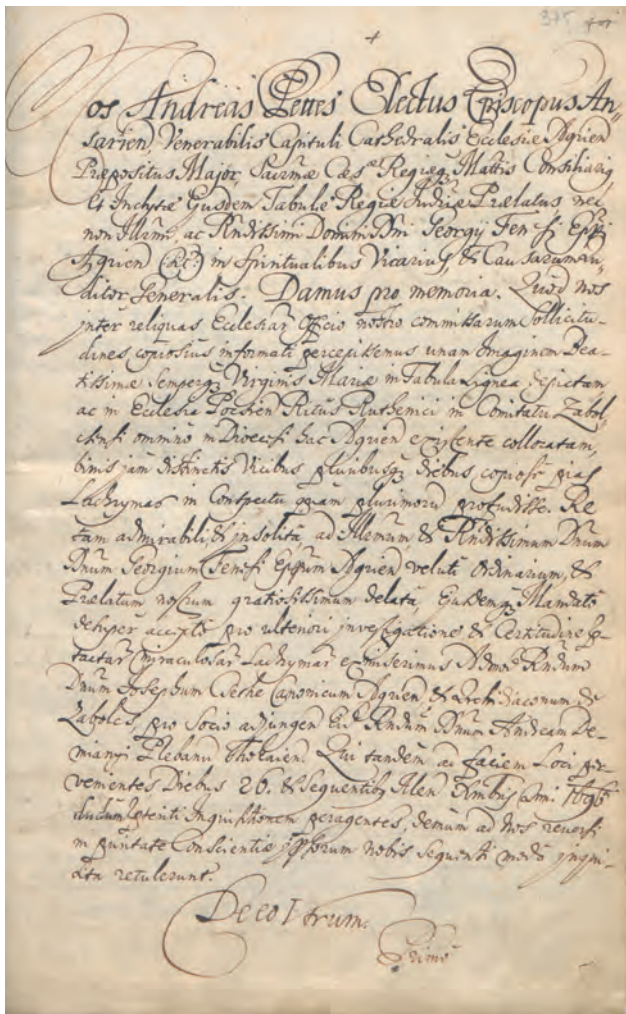 375
Nos Andreas Pettes Electus Episcopus An-
sarien, Venerabilis Capituli Cathedralis Ecclesiæ Agrien
Præpositus Major Sacrmæ Cæs Regiæq Mattis Consiliarig,
Et Inclytæ Ejusdem Tabulæ Regiæ Judriæ Prælatus nec
non Illrmi, ac Rndissimi Domini Dni Georgij Fenesfi Eppi
Agrien (&c) in Spiritualibus Vicarius, & Causarum Au-
ditor Generalis. Damus pro memoria. Quod nos
inter reliquas Ecclesiar officio nostro commissarum Sollicitu-
dines copiosius informati percepissemus unam Imaginem Bea-
tissimæ Semperq Virginis Mariæ in Tabula Lignea depictam
ac in Ecclesia Pocsien Ritus Ruthenici in Comitatu Zabol-
chensi omnino in Diœcesi hac Agrien existente collocatam,
binis jam distinctis vicibus pluribusq diebus, copiose
Lachrymas in Conspectu quam plurimorū profudisse. Re
tam admirabili, & insolita, ad Illrmum, & Rndissimum Dnum
Dnum Georgium Fenesfi Eppum Agrien veluti Ordinarium, &
Prælatum nostrum gratiosissimum delata, Ejusdemq Mandato
desuper accepto pro ulteriori investigatione & Certitudine
tactar miraculosar Lachrymar exmiserimus Admod Rndum
Dnum Josephum Csethe Canonicum Agrien, & Archidiaconum de
Zabolcs, pro Socio adjungen Ei Rndum Dnum Andream De-
mianyi Plebanū Thokaien. Qui tandem ad faciem Loci per-
venientes Diebus 26. & Sequentibg Xbris Ani 1696
Inquisitionem peragentes, demum ad Nos reversi
in puritate Conscientiæ ipsorum nobis Sequenti modo
retulerunt.
De eo Utrum.
Primo